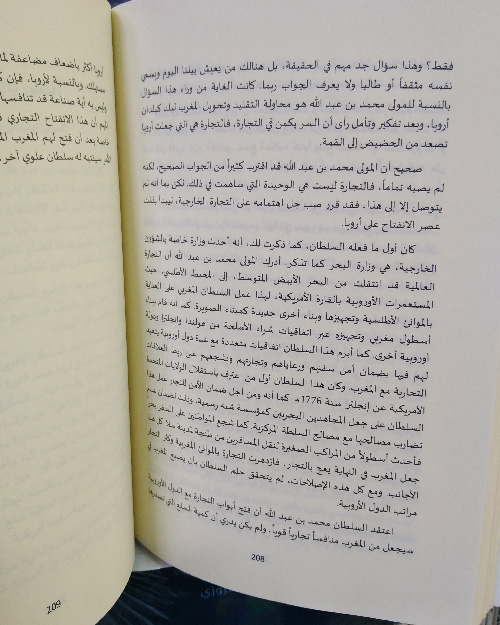 فقط؟ وهذا سؤال جد مهم في الحقيقة، بل هنالك من يعيش بيننا اليوم ويسمي
نفسه مثقفاً أو طالبا ولا يعرف الجواب ربما. كانت الغاية من وراء هذا السؤال
بالنسبة للمولى محمد بن عبد الله هو محاولة التقليد وتحويل المغرب لبلد كبلدان
أوروبا، وبعد تفكير وتأمل رأى أن السر يكمن في التجارة، فالتجارة هي التي جعلت أوروبا
تصعد من الحضيض إلى القمة.
صحيح أن المولى محمد بن عبد الله قد اقترب كثيراً من الجواب الصحيح، لكنه
لم يصبه تماماً، فالتجارة ليست هي الوحيدة التي ساهمت في ذلك. لكن بما أنه لم
يتوصل إلا إلى هذا، فقد قرر صب جل اهتمامه على التجارة الخارجية، ليبدأ بذلك
عصر الانفتاح على أوروبا.
كان أول ما فعله السلطان، كما ذكرت لك، أنه أحدث وزارة خاصة بالشؤون
الخارجية، هي وزارة البحر كما تذكر. أدرك المولى محمد بن عبد الله أن التجارة
العالمية قد انتقلت من البحر الأبيض المتوسط، إلى المحيط الأطلسي، حيث
المستعمرات الأوروبية بالقارة الأمريكية، لهذا عمل السلطان المغربي على العناية
بالموانئ الأطلسية وتجهيزها وبناء أخرى جديدة كميناء الصويرة. كما أنه قام ببناء
أسطول مغربي وتجهيزه عبر اتفاقيات شراء الأسلحة من هولندا وإنجلترا ودولة
أوروبية أخرى. كما أبرم هذا السلطان اتفاقيات متعددة مع عدة دول أوروبية يتعهد
لهم فيها بضمان أمن سفنهم ورعاياهم وتجارتهم وتشجعهم على ربط العلاقات
التجارية مع المغرب. وكان هذا السلطان أول من اعترف باستقلال الولايات المتحدة
الأمريكية عن إنجلترا سنة 1776م. كما أنه ومن أجل ضمان الأمن للتجار عمل هذا
السلطان على جعل المجاهدين البحريين كمؤسسة شبه رسمية، وذلك لضمان عدم
تضارب مصالحها مع مصالح السلطة المركزية كما شجع المواطنين على السفر بحرا
فأحدث أسطولاً من المراكب الصغيرة لنقل المسافرين من طنجة لمدينة سلا. كل هذا
جعل المغرب في النهاية يعج بالتجار، فازدهرت التجارة بالموانئ المغربية وكثر التجار
الأجانب. ومع كل هذه الإصلاحات، لم يتحقق حلم السلطان بأن يصبح المغرب في
مراتب الدول الأوروبية.
اعتقد السلطان محمد بن عبد الله أن فتح أبواب التجارة مع الدول الأوروبية
سيجعل من المغرب منافساً تجارياً قوياً. ولم يكن يدري أن كمية السلع التي تصدرها
208
أوربا أكثر بأضعاف مضاعفة
وبالنسبة لأوروبا، فإن
وليس به أية صناعة قد تنافسها
أن هذا الانفتاح التجاري
خاصة بعد أن فتح لهم المغرب
سينتبه له سلطان علوي آخر
209